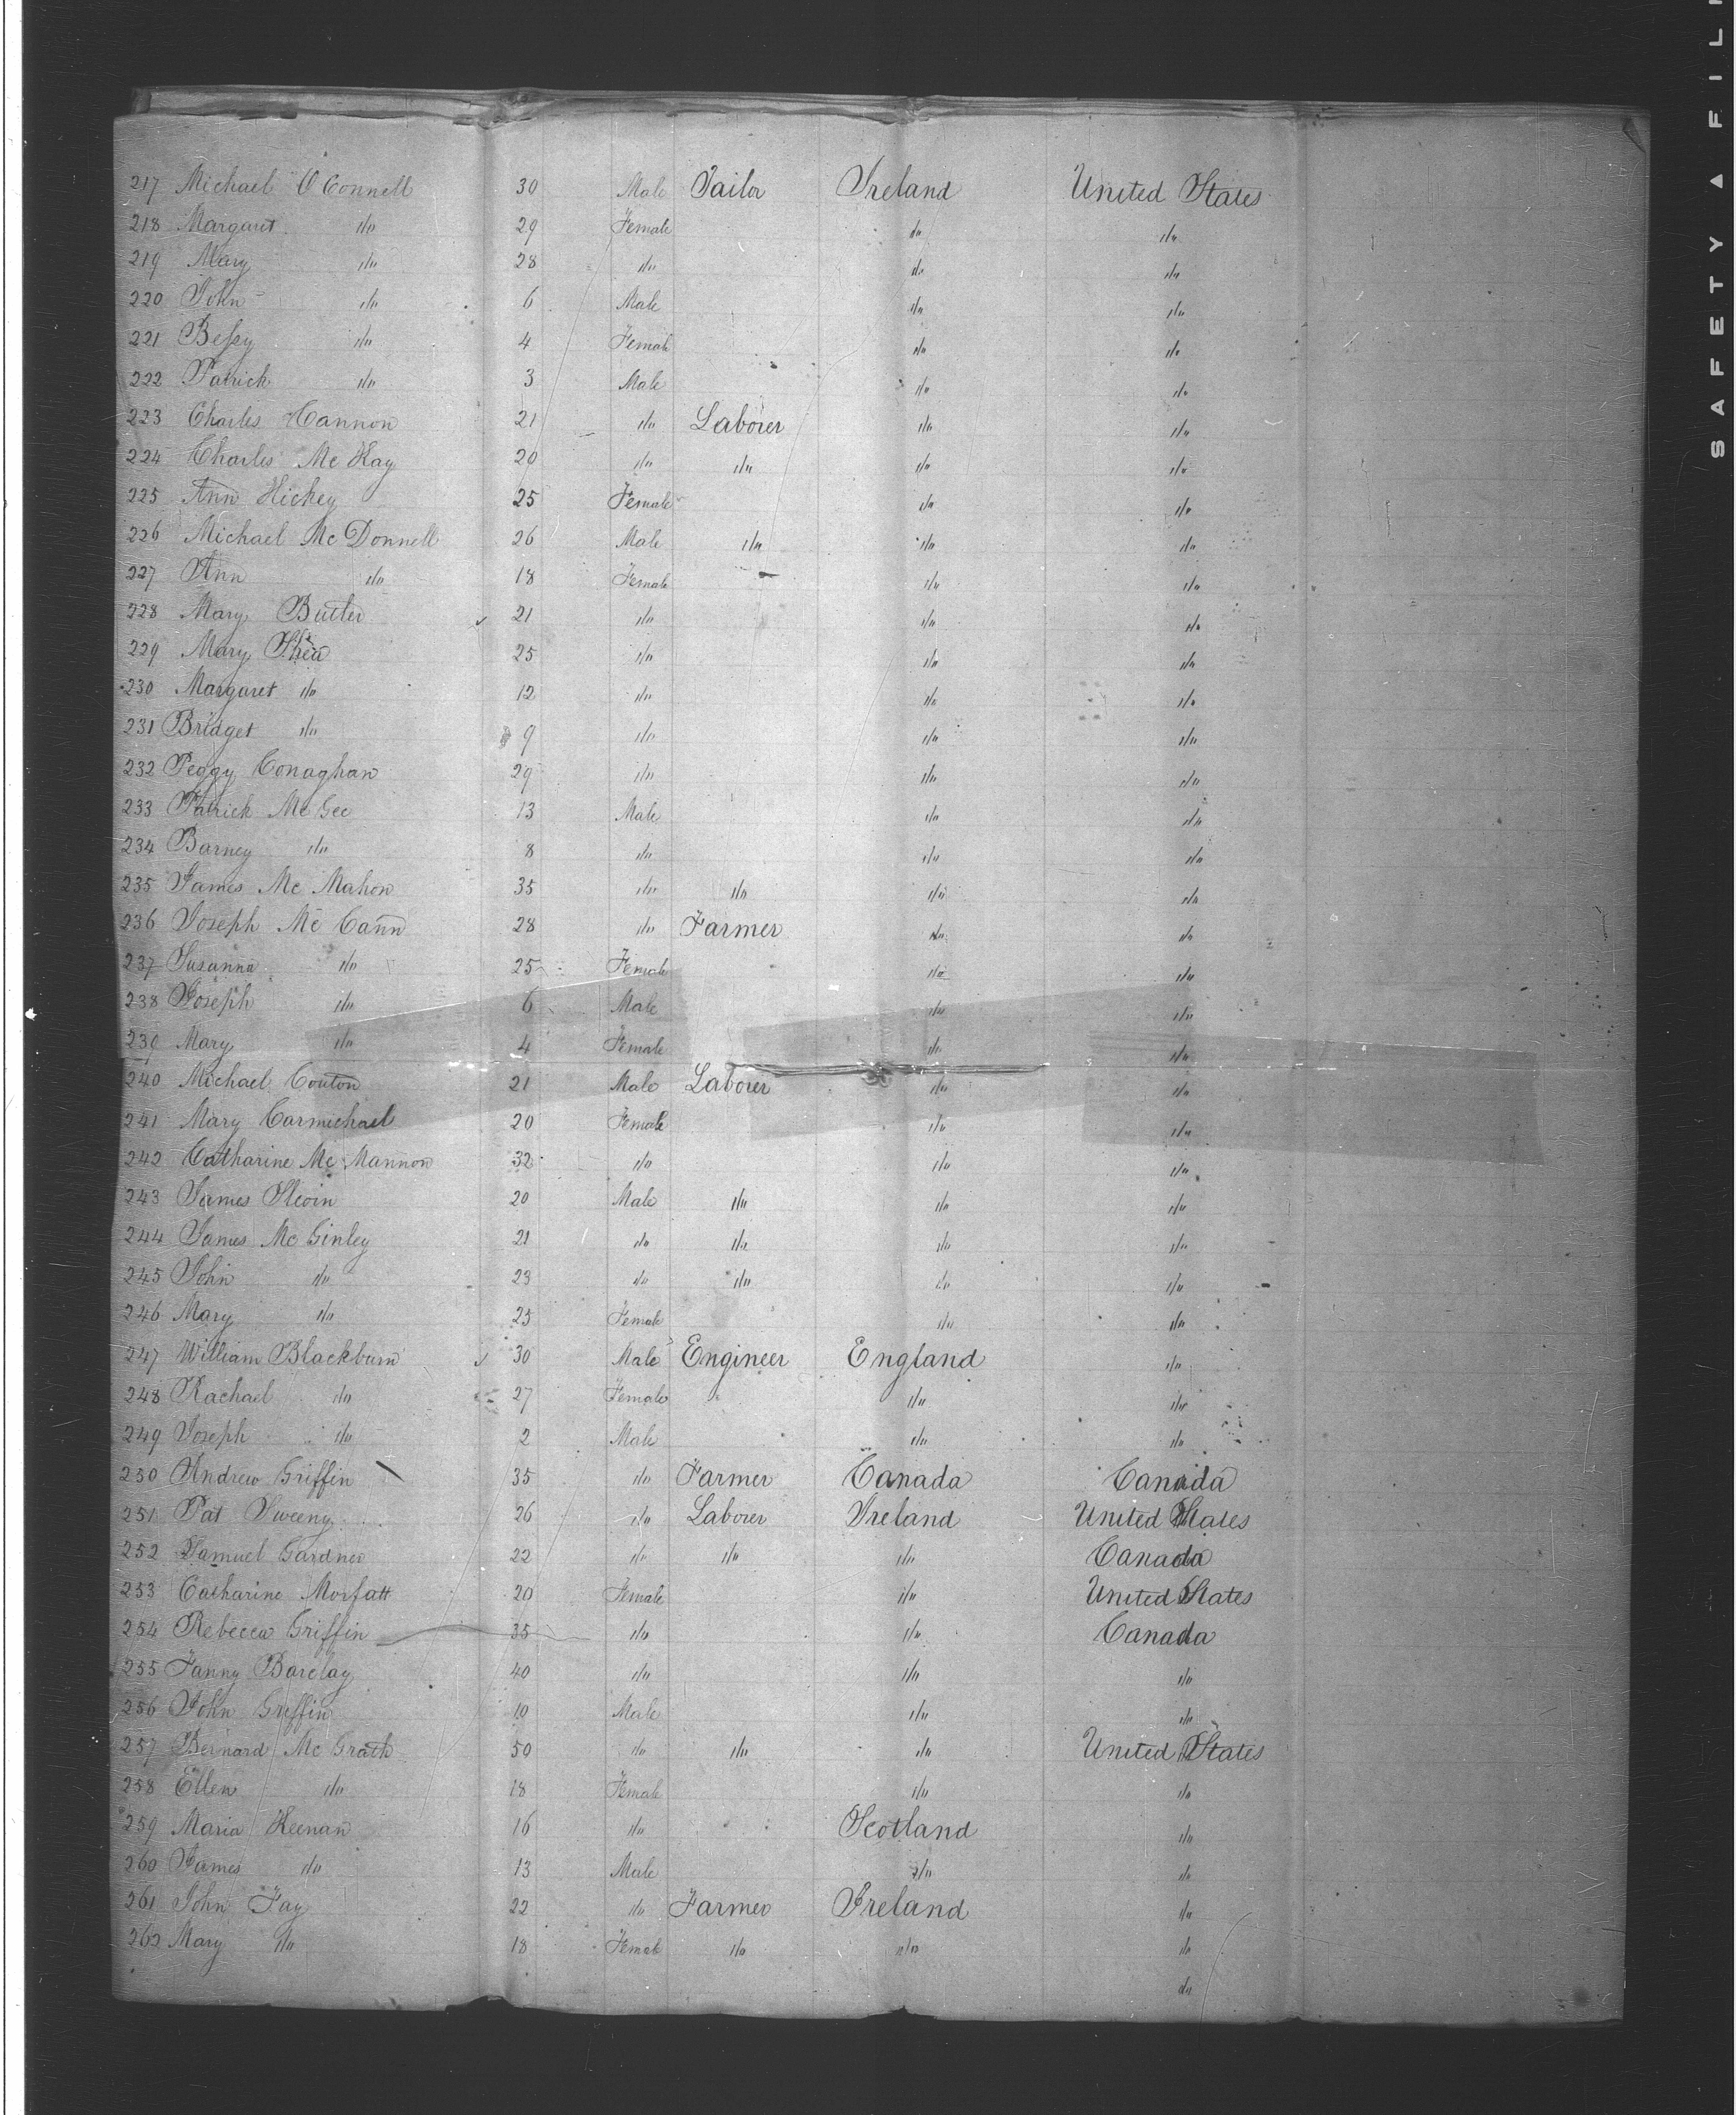 SAFETY ▲ FIL
217 Michael O'Connell 30 Male Tailor Ireland United States
218 Margaret do 29 Female do do
219 Mary do 28 do do do
220 John do 6 Male do do
221 Bessy do 4 Female do do
222 Patrick do 3 Male do do
223 Charles Cannon 21 do Laborer do do
224 Charles McKay 20 do do do do
225 Ann Hickey 25 Female do do
226 Michael McDonnell 26 Male do do do
227 Ann do 18 Female do do
228 Mary Butler 21 do do do
229 Mary Shea 25 do do do
230 Margaret do 12 do do do
231 Bridget do 9 do do do
232 Peggy Conaghan 29 do do do
233 Patrick McGee 13 Male do do
234 Barney do 8 do do do
235 James McMahon 35 do do do do
236 Joseph McCann 28 do Farmer do do
237 Susanna do 25 Female do do
238 Joseph do 6 Male do do
230 Mary do 4 Female do do
240 Michael Couton 21 Male Laborer do do
241 Mary Carmichael 20 Female do do
242 Catharine McMannon 32 do do do
243 James Slevin 20 Male do do do
244 James McGinley 21 do do do do
245 John do 23 do do do do
246 Mary do 25 Female do do
247 William Blackburn 30 Male Engineer England do
248 Rachael do 27 Female do do
249 Joseph do 2 Male do do
250 Andrew Griffin 35 do Farmer Canada Canada
251 Pat Sweeny 26 do Laborer Ireland United States
252 Samuel Gardner 22 do do do Canada
253 Catharine Morfatt 20 Female do United States
254 Rebecca Griffin 35 do do Canada
255 Fanny Barclay 40 do do do
256 John Griffin 10 Male do do
257 Bernard McGrath 50 do do do United States
258 Ellen do 18 Female do do
259 Maria Keenan 16 do Scotland do
260 James do 13 Male do do
261 John Fay 22 do Farmer Ireland do
262 Mary do 18 Female do do do
do